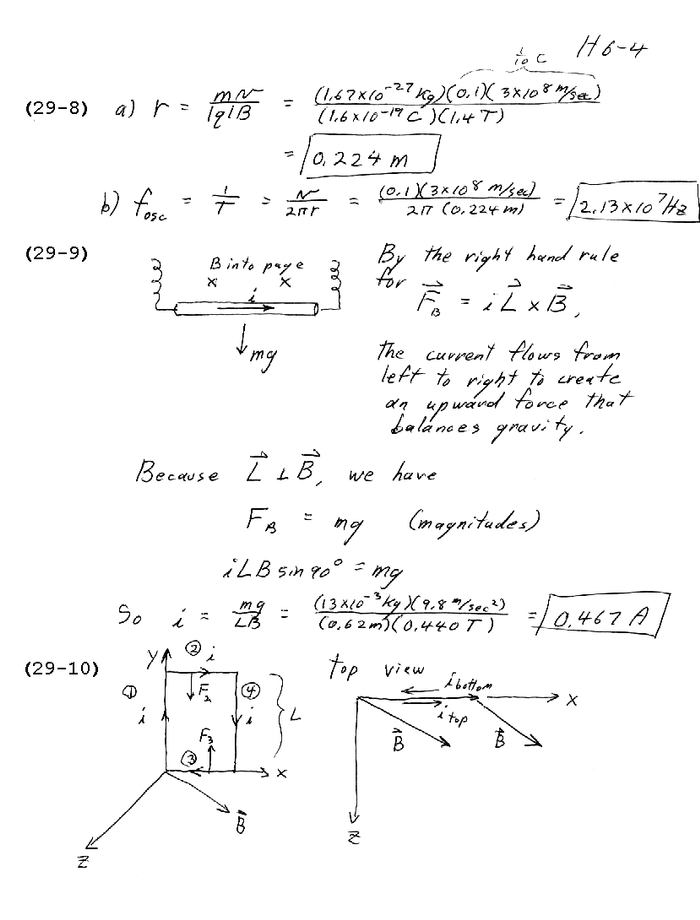 H6-4
1/10 C
(29-8) a) r = mv/|q|B = (1.67×10⁻²⁷ Kg)(0.1)(3×10⁸ m/sec)/(1.6×10⁻¹⁹ C)(1.4 T)
= 0.224 m
b) f_osc = 1/T = v/2πr = (0.1)(3×10⁸ m/sec)/2π(0.224 m) = 2.13×10⁷ Hz
(29-9) By the right hand rule
B into page for F⃗_B = i L⃗ × B⃗,
x x
i
mg
the current flows from
left to right to create
an upward force that
balances gravity.
Because L⃗ ⊥ B⃗, we have
F_B = mg (magnitudes)
iLB sin 90° = mg
So i = mg/LB = (13×10⁻³ kg)(9.8 m/sec²)/(0.62 m)(0.440 T) = 0.467 A
(29-10) y ② i top view
① i F₂ ④ i L
F₃ ③ x
B⃗
z
i bottom
i top x
B⃗ B⃗
z